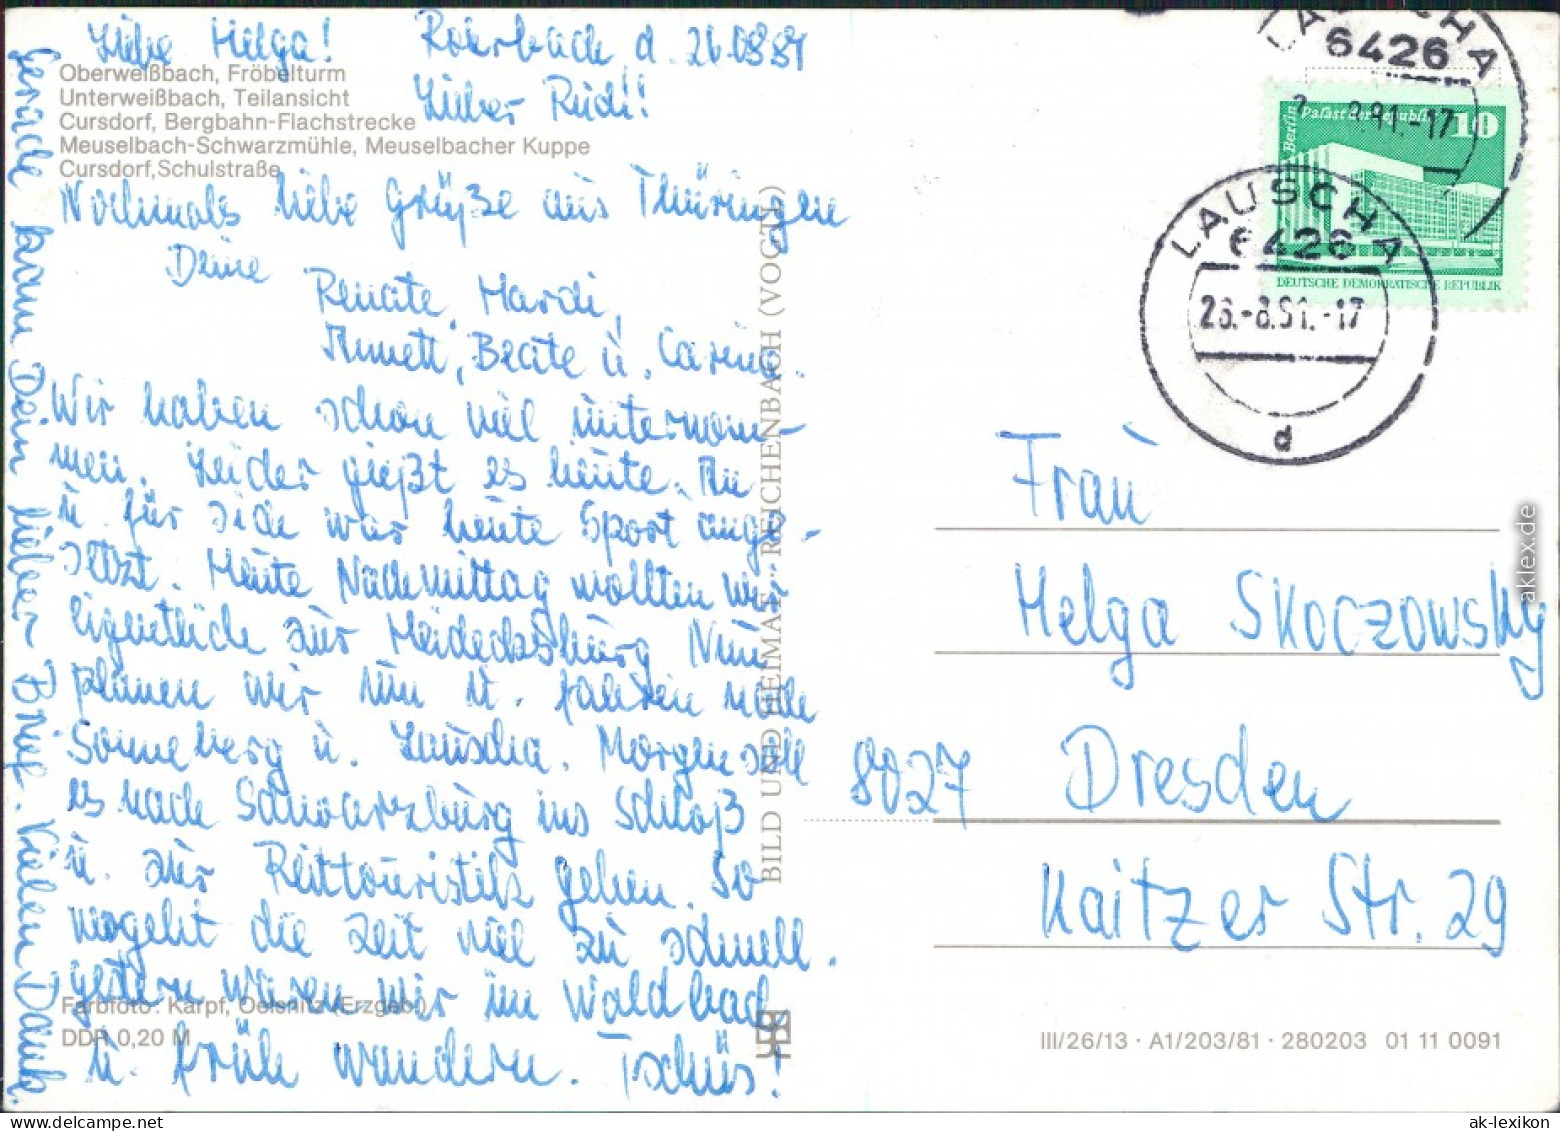 Liebe Helga! Rohrbach d. 26.08.81
Lieber Rudi!
Oberweißbach, Fröbelturm
Unterweißbach, Teilansicht
Cursdorf, Bergbahn-Flachstrecke
Meuselbach-Schwarzmühle, Meuselbacher Kuppe
Cursdorf, Schulstraße
Nochmals liebe Grüße aus Thüringen
Deine
Renate, Hardi,
Annett, Beate u. Carina.
Wir haben schon viel unternom-
men. Leider gießt es heute. An
u. für sich war heute Sport ange-
setzt. Heute Nachmittag wollten wir
eigentlich zur Heidecksburg. Nun
planen wir um u. fahren nach
Sonneberg u. Lauscha. Morgen soll
es nach Schwarzburg ins Schloß
u. zur Reittouristik gehen. So
vergeht die Zeit viel zu schnell.
Gestern waren wir im Waldbad
u. früh wandern. Tschüs!
Gerade kam Dein lieber Brief. Vielen Dank.
Farbfoto: Karpf, Oelsnitz (Erzgeb.)
DDR 0,20 M
BILD UND HEIMAT REICHENBACH (VOGTL)
LAUSCHA
6426
8.91.-17
Berlin Palast der Republik 10
DEUTSCHE DEMOKRATISCHE REPUBLIK
LAUSCHA
6426
26.-8.91.-17
d
Frau
Helga Skoczowsky
8027 Dresden
Kaitzer Str. 29
III/26/13 · A1/203/81 · 280203 01 11 0091
aklex.de
ak-lexikon